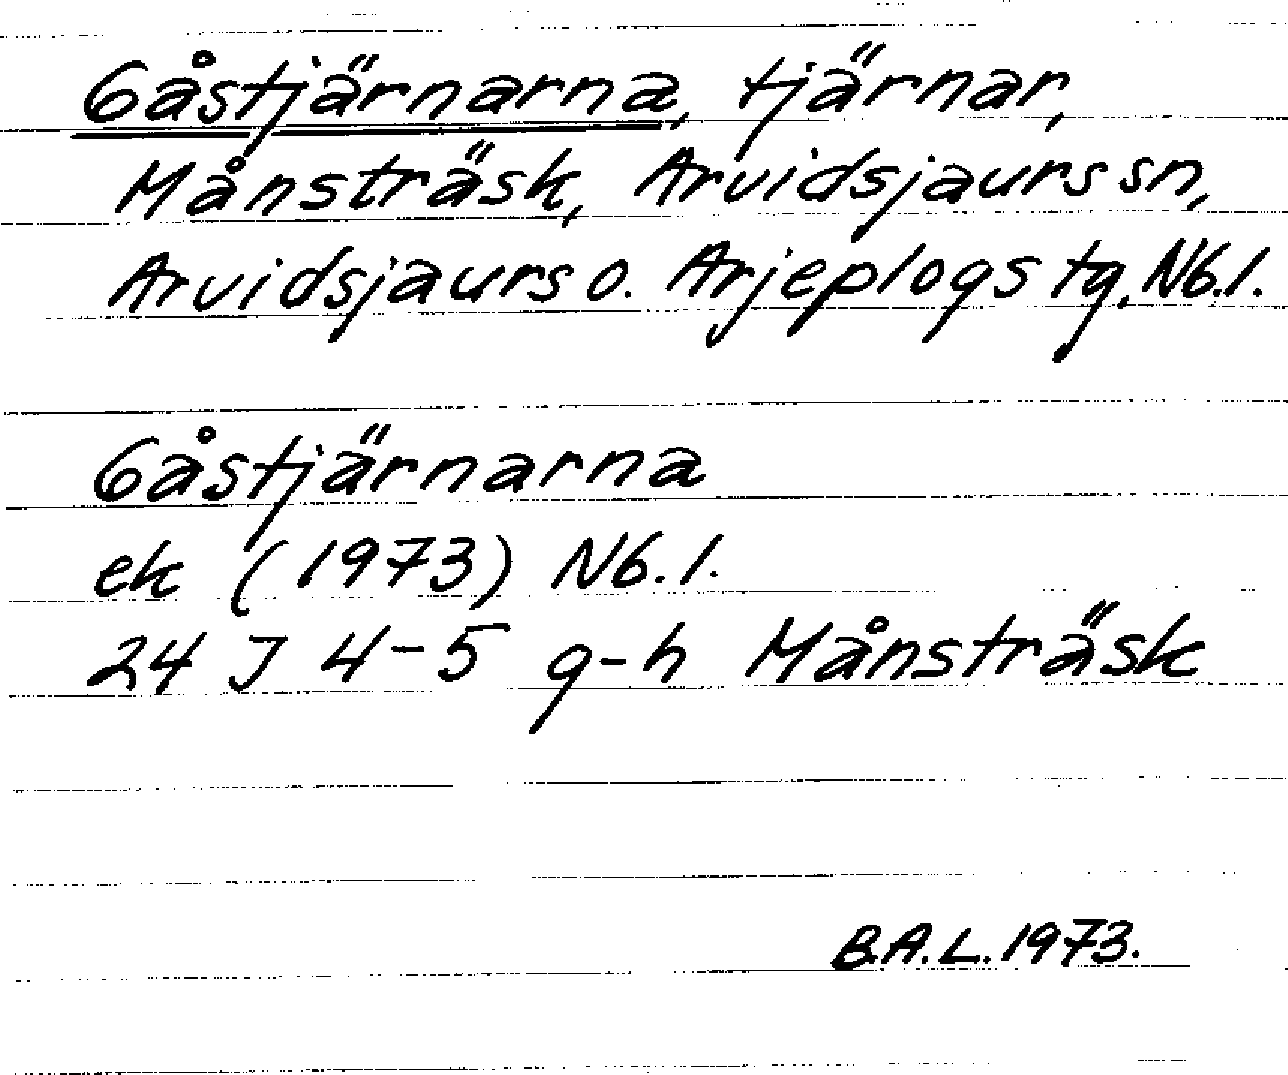 Gåstjärnarna, tjärnar,
Månsträsk, Arvidsjaurs sn,
Arvidsjaurs o. Arjeplogs tg, Nb.l.
Gåstjärnarna
ek (1973) Nb.l.
24 J 4-5 g-h Månsträsk
B.A.L. 1973.